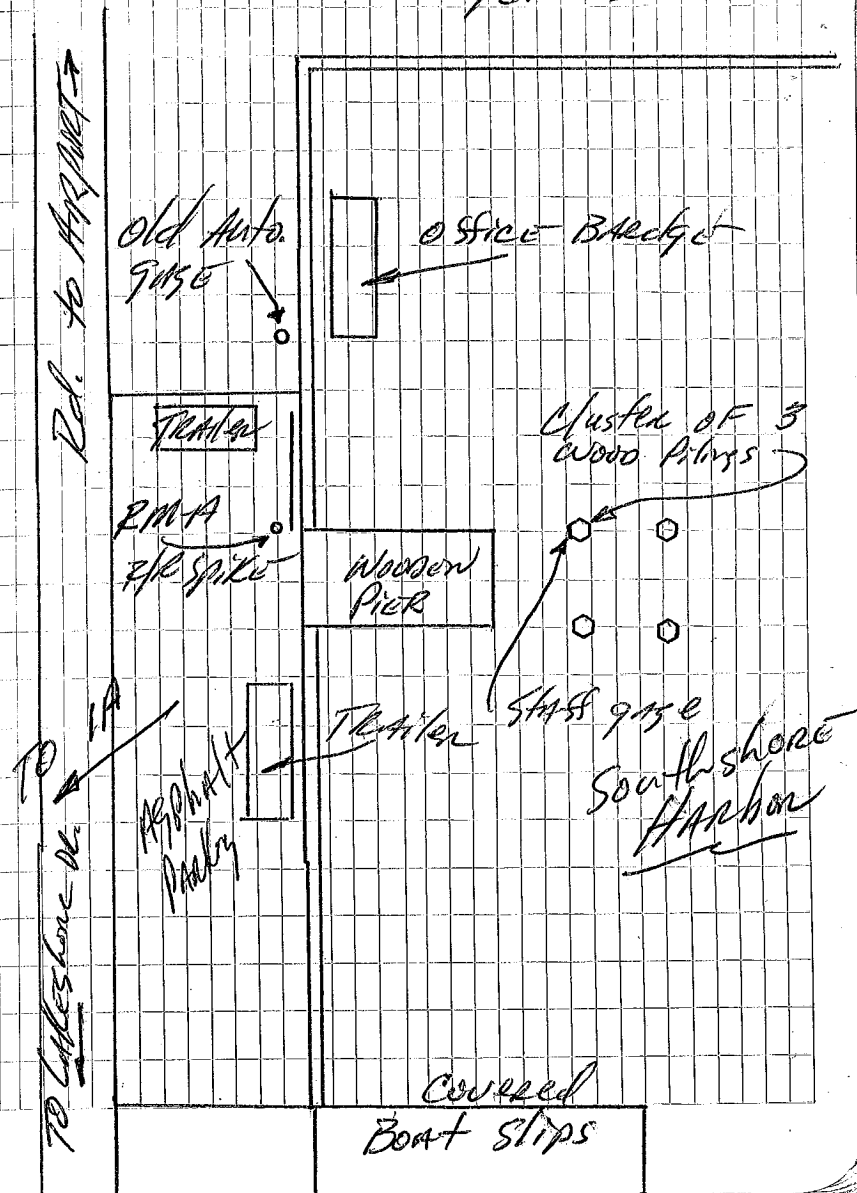 Rd. to AIRPORT
Old Auto.
gage
office BARdge
TRAILER
Cluster OF 3
WOOD Pilings
RM-A
R/R SPIKE
WOODEN
PIER
TO 1A
TRAILER
Staff gage
Southshore
HARbor
Asphalt
Parking
TO Lakeshore DR.
Covered
Boat Slips